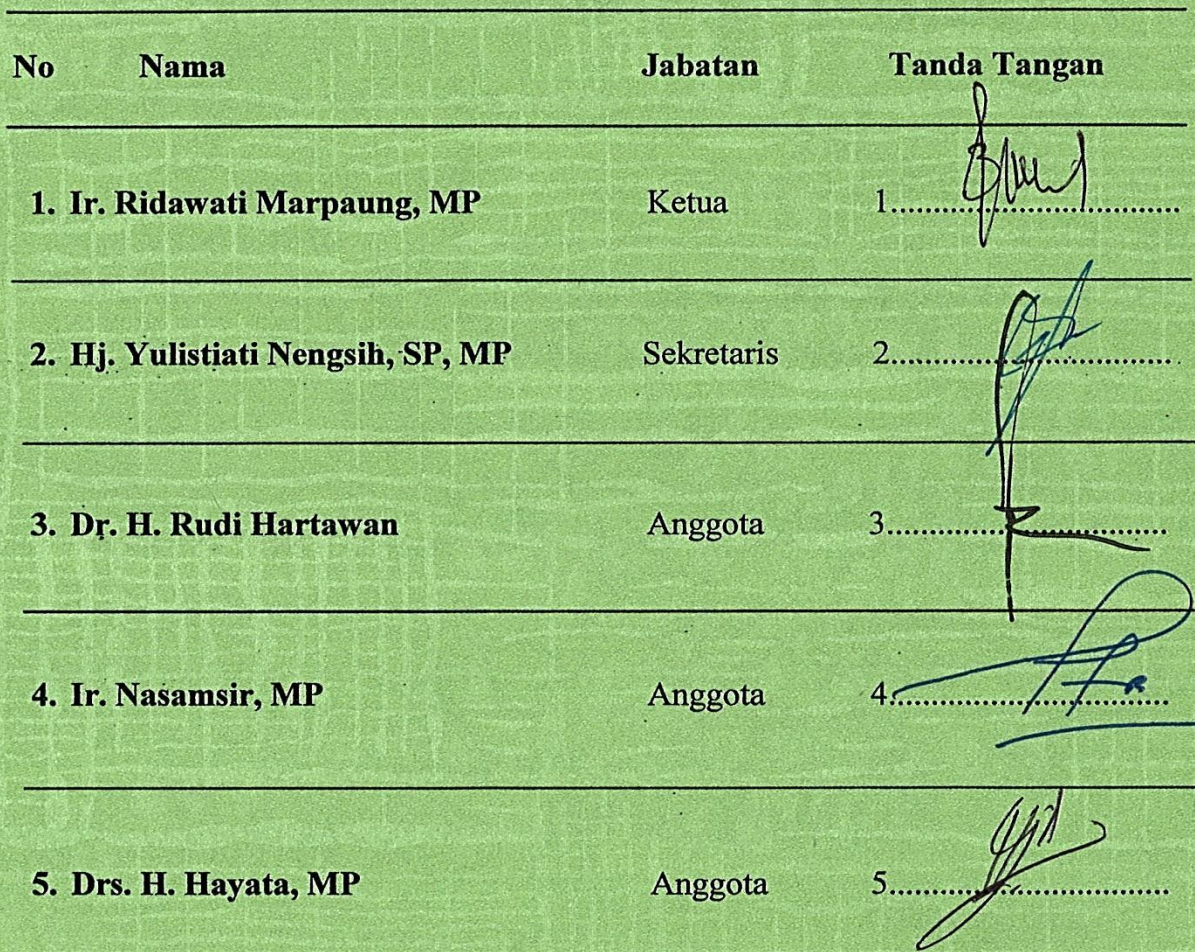 No Nama Jabatan Tanda Tangan
1. Ir. Ridawati Marpaung, MP Ketua 1.......................................
2. Hj. Yulistiati Nengsih, SP, MP Sekretaris 2.......................................
3. Dr. H. Rudi Hartawan Anggota 3.......................................
4. Ir. Nasamsir, MP Anggota 4.......................................
5. Drs. H. Hayata, MP Anggota 5.......................................